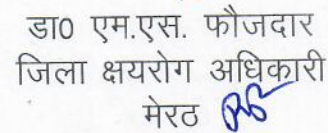 डा0 एम.एस. फौजदार
जिला क्षयरोग अधिकारी
मेरठ